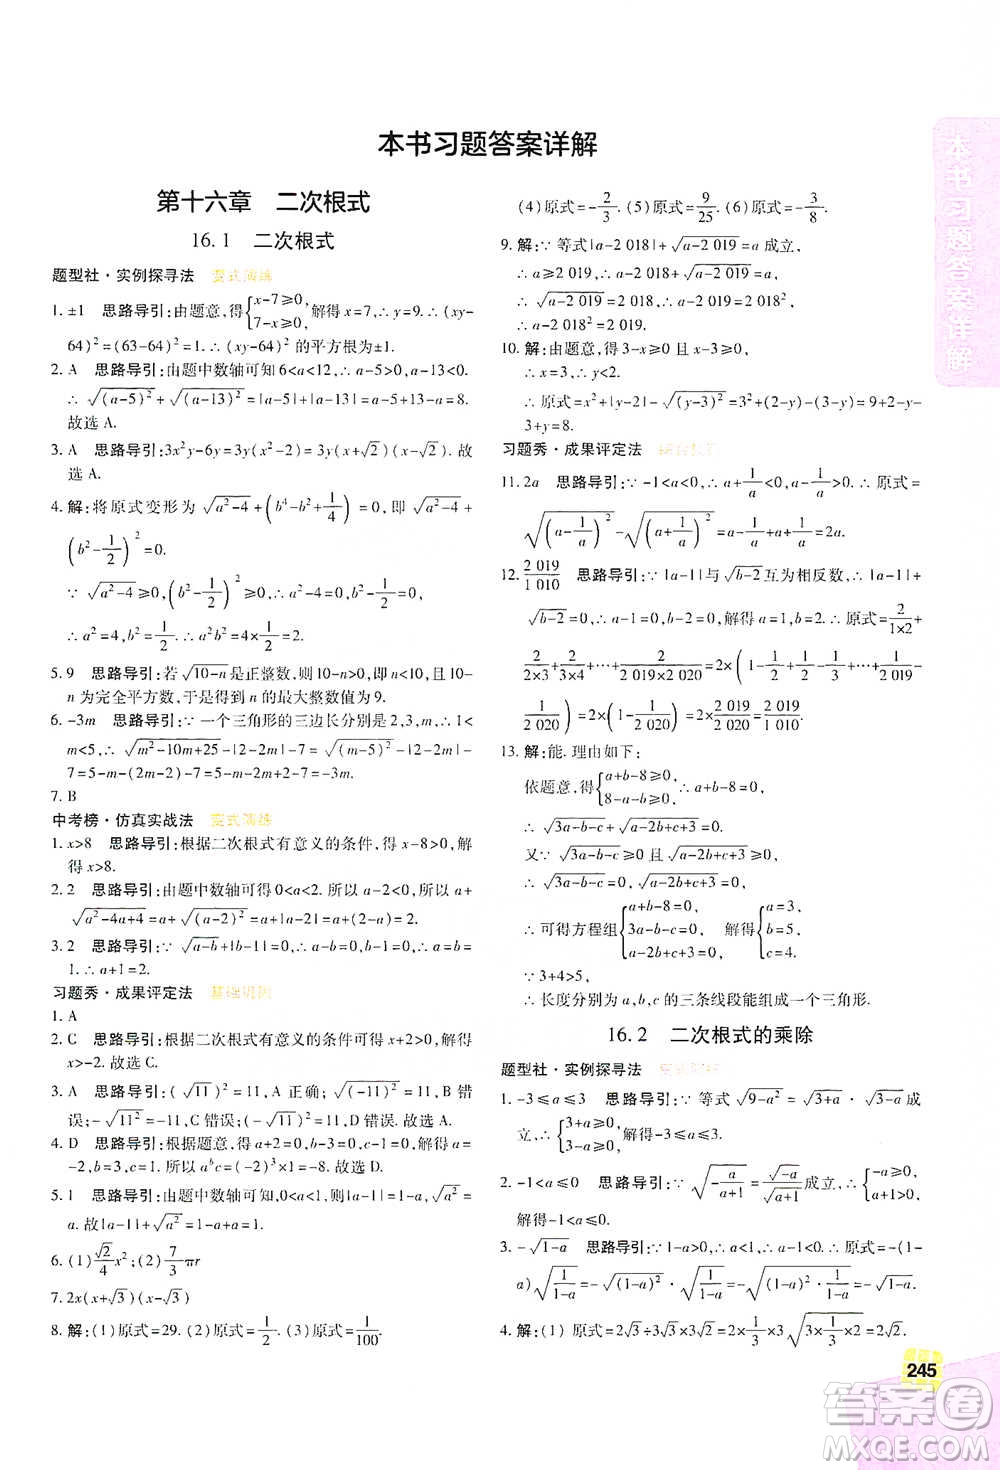 本书习题答案详解
第十六章 二次根式
16.1 二次根式
题型社·实例探寻法 变式演练
1. ±1 思路导引:由题意,得{x-7≥0, 7-x≥0. 解得 x=7,∴y=9.∴(xy-
64)²=(63-64)²=1.∴(xy-64)²的平方根为±1.
2. A 思路导引:由题中数轴可知 6<a<12,∴a-5>0,a-13<0.
∴√(a-5)²+√(a-13)²=|a-5|+|a-13|=a-5+13-a=8.
故选 A.
3. A 思路导引:3x²y-6y=3y(x²-2)=3y(x+√2)(x-√2).故
选 A.
4. 解:将原式变形为 √(a²-4)+(b⁴-b²+1/4)=0,即 √(a²-4)+
(b²-1/2)²=0.
∵√(a²-4)≥0,(b²-1/2)²≥0,∴a²-4=0,b²-1/2=0.
∴a²=4,b²=1/2.∴a²b²=4×1/2=2.
5. 9 思路导引:若√(10-n)是正整数,则10-n>0,n<10,且10-
n为完全平方数,于是得到 n 的最大整数值为 9.
6. -3m 思路导引:∵一个三角形的三边长分别是 2,3,m,∴1<
m<5.∴√(m²-10m+25)-|2m+5|=√(m-5)²-|2m+5|=
5-m-(2m+5)=-3m.
7. B
中考榜·仿真实战法 变式演练
1. x>8 思路导引:根据二次根式有意义的条件,得 x-8>0,解
得 x>8.
2. 2 思路导引:由题中数轴可得 0<a<2. 所以 a-2<0. 所以 a+
√(a²-4a+4)=a+√(a-2)²=a+(2-a)=2.
3. 2 思路导引:∵√(a-b)+|b-1|=0,∴b-1=0,a-b=0.∴a=b=
1.∴a+1=2.
习题秀·成果评定法 基础巩固
1. A
2. C 思路导引:根据二次根式有意义的条件可得 2x-4≥0,解
得 x≥2.故选 C.
3. A 思路导引:(√11)²=11,A 正确;√(-11)²=11,B 错
误;-√11²=-11,C 错误;(-√11)²=11,D 错误.故选 A.
4. D 思路导引:根据题意,得 a+2=0,b-3=0,c-1=0,∴a=
-2,b=3,c=1.所以 aᵇc=(-2)³×1=-8.故选 D.
5. 1 思路导引:由题中数轴可得 0<a<1,则|a-1|=1-a,√a²=
a.故|a-1|+√a²=1-a+a=1.
6. (1)√2/4 x²;(2)7/3 πr
7. 2x(x+√3)(x-√3)
8. 解:(1)原式=29. (2)原式=1/2. (3)原式=1/100.
(4)原式=-2/3. (5)原式=9/25. (6)原式=-3/8.
9. 解:∵等式|a-2 018|+√(a-2 019)=a 成立,
∴a≥2 019.∴a-2 018+√(a-2 019)=a.
∴√(a-2 019)=2 018.∴a-2 019=2 018².
∴a-2 018²=2 019.
10. 解:由题意,得 3-x≥0 且 x-3≥0.
∴x=3.
∴原式=x²+|1-y|-√(y-3)²=3²+(y-1)-(y-3)=9+y-1+
3-y=8.
习题秀·成果评定法
11. 2a 思路导引:∵-1<a<0,∴a+1/a<0,a-1/a>0. 原式=
√(a-1/a)²-√(a+1/a)²=a-1/a+a+1/a=2a.
12. 2 019/1 010 思路导引:∵|a-1|与√(b-2)互为相反数,∴|a-1|+
√(b-2)=0.∴a-1=0,b-2=0,解得 a=1,b=2.∴原式=2/(1×2)+
2/(2×3)+2/(3×4)+…+2/(2 019×2 020)=2×(1-1/2+1/2-1/3+…+1/2 019-
1/2 020)=2×(1-1/2 020)=2×2 019/2 020=2 019/1 010.
13. 解:能. 理由如下:
依题意,得{a+b-8≥0, 8-a-b≥0.∴a+b=8.
∴√(3a-b-c)+√(a-2b+c+3)=0.
又∵√(3a-b-c)≥0 且√(a-2b+c+3)≥0,
∴√(3a-b-c)=0,√(a-2b+c+3)=0.
∴可得方程组{a+b-8=0, 3a-b-c=0, a-2b+c+3=0. 解得{a=3, b=5, c=4.
∵3+4>5,
∴长度分别为 a,b,c 的三条线段能组成一个三角形.
16.2 二次根式的乘除
题型社·实例探寻法
1. -3≤a≤3 思路导引:∵等式√(9-a²)=√(3+a)·√(3-a)成
立,∴{3+a≥0, 3-a≥0.∴-3≤a≤3.
2. -1<a≤0 思路导引:∵√(-a/(a+1))=√(-a)/√(a+1)成立,∴{-a≥0, a+1>0.
解得-1<a≤0.
3. -√(1-a) 思路导引:∵1-a>0,∴a<1.∴a-1<0.∴原式=-(1-
a)√(1/(1-a))=-√(1-a)²·√(1/(1-a))=-√((1-a)²·1/(1-a))=-√(1-a).
4. 解:(1) 原式=2√3÷3√2×3√2=2×1/3×3√(3×1/2×2)=2√3.
245
本书习题答案详解
答案卷
MXQE.COM